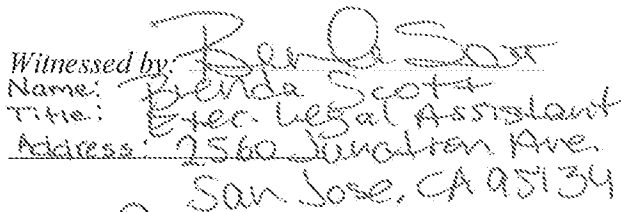 Witnessed by: Brenda Scott
Name: Brenda Scott
Title: Exec. Legal Assistant
Address: 2560 Junction Ave.
San Jose, CA 95134